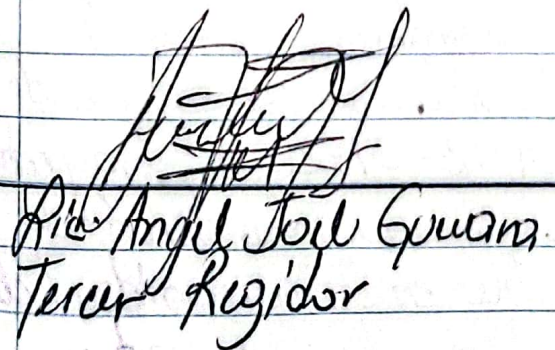 Lic Angel Joel Guevara
Tercer Regidor